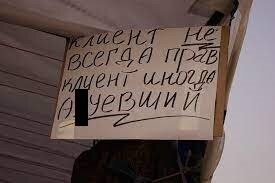 КЛИЕНТ НЕ
ВСЕГДА ПРАВ
КЛИЕНТ ИНОГДА
А УЕВШИЙ